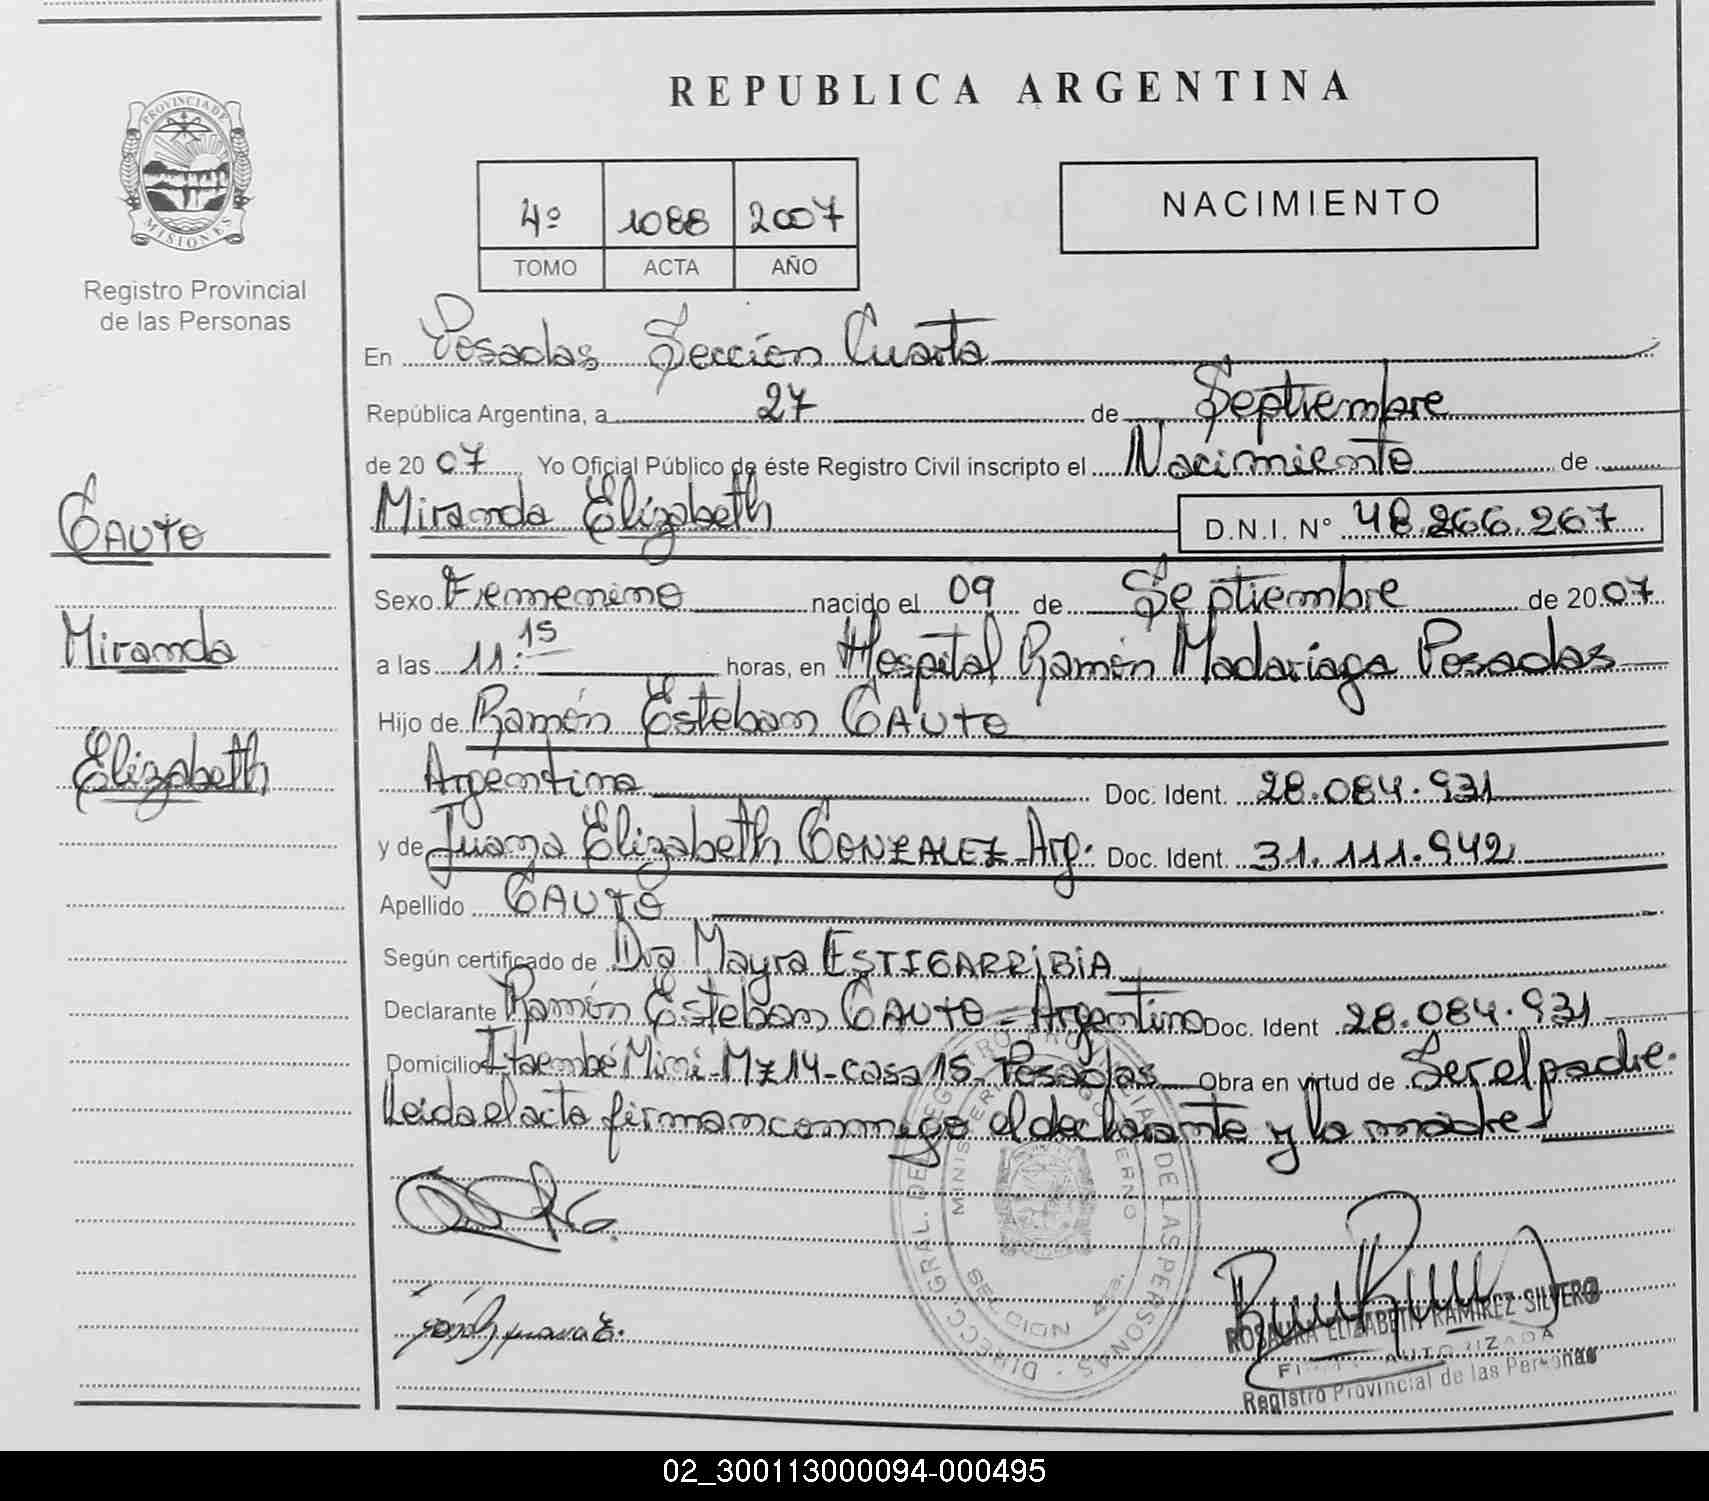 REPUBLICA ARGENTINA
PROVINCIA DE
MISIONES
Registro Provincial
de las Personas
4º 1088 2007
TOMO ACTA AÑO
NACIMIENTO
En Posadas Sección Cuarta
República Argentina, a 27 de Septiembre
de 2007 Yo Oficial Público de éste Registro Civil inscripto el Nacimiento de
Miranda Elizabeth D.N.I. N° 48.266.267
GAUTO
Miranda
Elizabeth
Sexo Femenino nacido el 09 de Septiembre de 2007
a las 11:15 horas, en Hospital Ramón Madariaga Posadas
Hijo de Ramón Esteban GAUTO
Argentina Doc. Ident. 28.084.931
y de Juana Elizabeth GONZALEZ Arg. Doc. Ident. 31.111.942
Apellido GAUTO
Según certificado de Dra Mayra ESTIGARRIBIA
Declarante Ramón Esteban GAUTO - Argentino Doc. Ident 28.084.931
Domicilio Itaembé Mini - Mz 14 - casa 15 - Posadas Obra en virtud de Ser el padre.
Leida el acta firman conmigo el declarante y la madre
DIRECC. GRAL. DE REGISTRO PROVINCIAL DE LAS PERSONAS
ROSAURA ELIZABETH RAMIREZ SILVERO
FIRMA AUTORIZADA
Registro Provincial de las Personas
02_300113000094-000495